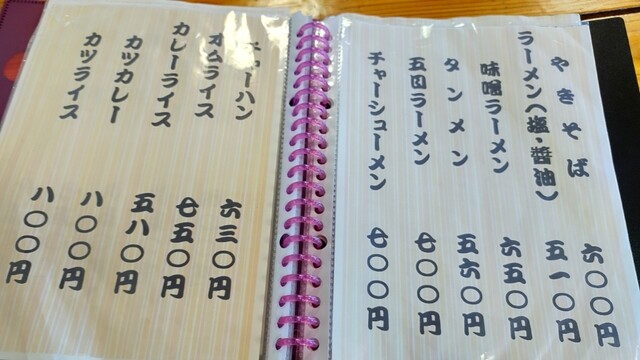 やきそば 六〇〇円
ラーメン(塩・醤油) 五一〇円
味噌ラーメン 六五〇円
タンメン 五六〇円
五目ラーメン 七〇〇円
チャーシューメン 七〇〇円
チャーハン 六三〇円
オムライス 七五〇円
カレーライス 五八〇円
カツカレー 八〇〇円
カツライス 八〇〇円